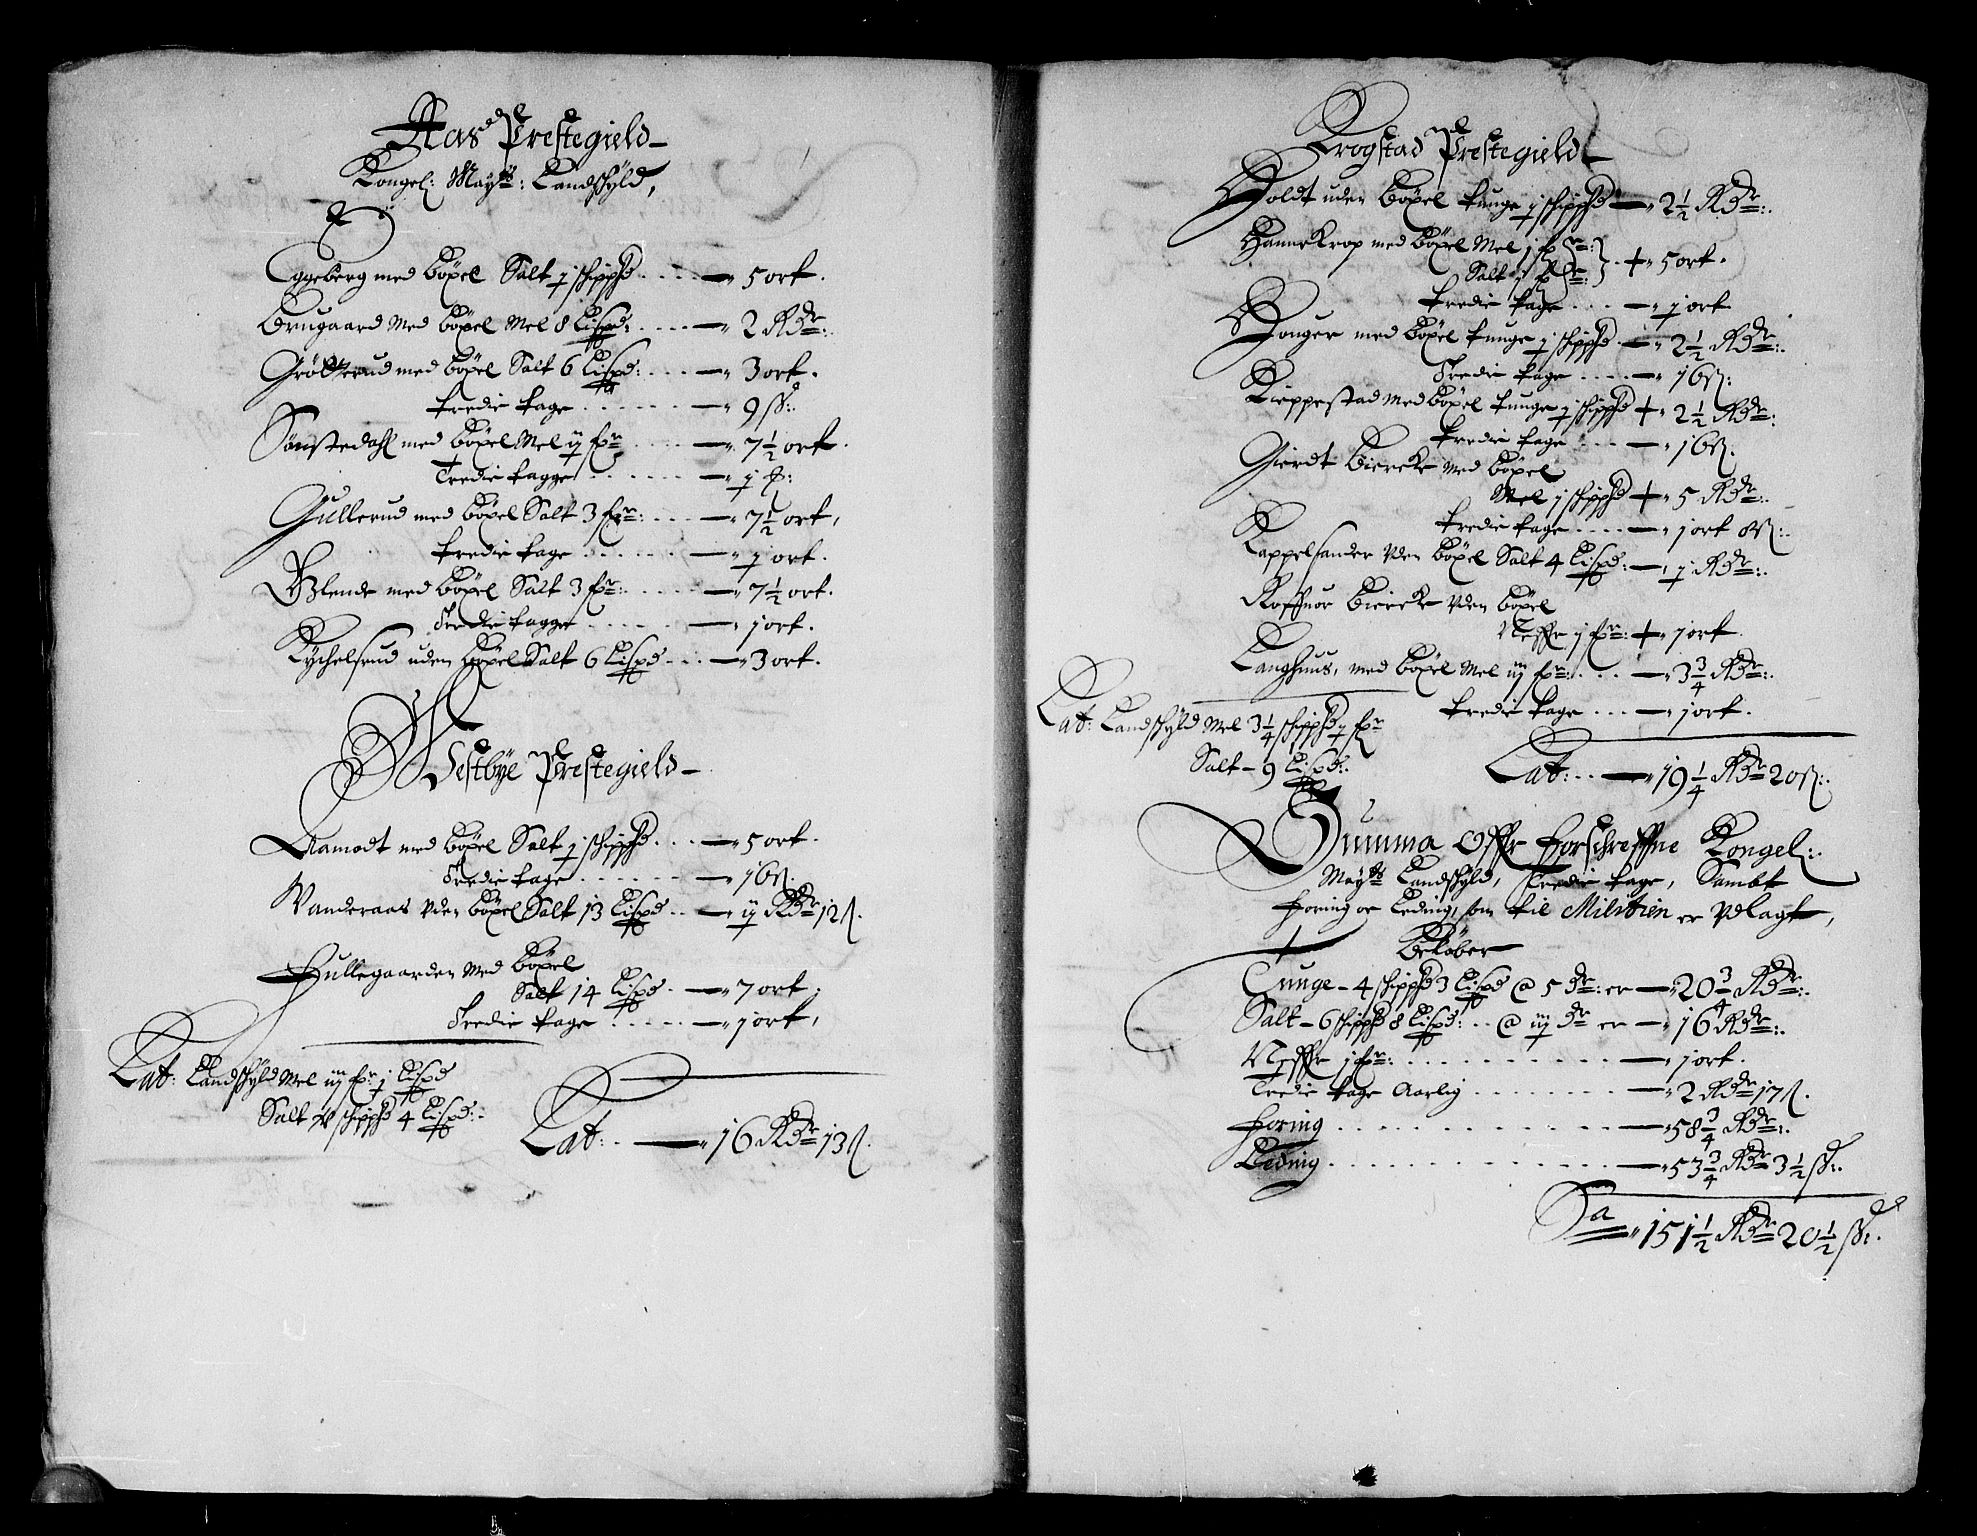 Aas Prestegield
Kongel: Mayts: Landschyld,
Eggeberg med böxel Salt j schippd .... 5 ort.
Brugaard Med böxel Mel 8 Lispd: .... 2 Rdr:
Gröttrud med böxel Salt 6 Lispd: .... 3 ort.
tredie tage ..... 9 ss:
Sönstedahl med böxel Mel ij fxr .... 7½ ort.
Tredie tagge ..... j
Gullerud med böxel Salt 3 fxr: ... 7½ ort,
tredie tage ..... j ort.
Blende med böxel Salt 3 fxr: .... 7½ ort.
Tredie tagge ..... j ort.
Kychelsrud uden böxel Salt 6 Lispd ... 3 ort.
Westbye Prestegield
Aamodt med böxel Salt j schippd ... 5 ort.
Tredie tage ...... 16 s.
Wanderaas vden böxel Salt 13 Lispd .. ij Rdr 12 s.
Hullegaarden Med böxel
Salt 14 Lispd . 7 ort.
Tredie tage ..... j ort,
Lat: Landschyld Mel iij fxr j Lispd
Salt v schippd 4 Lispd:
Lat: . 16 Rdr 13 s.
Krogstad Prestegield
Holdt uden böxel tunge j schippd 2½ Rdr:
Hannekrop med böxel Mel j fxr:
Salt j fxr: + 5 ort.
tredie tage .... j ort
Houger med böxel tunge j schippd . 2½ Rdr:
Tredie tage .... 16 s:
Kieppestad Med böxel tunge j schippd + 2½ Rdr:
tredie tage ... 16 s.
Gierdt Biercke Med böxel
Mel j schippd + 5 Rdr:
tredie tage .... j ort 8 s:
Kappelsander vden böxel Salt 4 Lispd: j Rdr:
Biercke vden böxel
Neffr j fxr: + j ort.
Langhuus, med böxel Mel iij fxr: ... 3¾ Rdr:
tredie tage ... j ort.
Lat: Landschyld Mel 3¼ schippd j fxr
Salt - 9 Lispd:
Lat: .. 19¼ Rdr 20 s:
Summa Offr forschreffne Kongel:
Mayts Landschyld, Tredie tage, Sambt
foring oc Leding, som til Militien er vdlagt,
Beløber
Tunge - 4 schippd 3 Lispd @ 5 dr: er 20¾ Rdr:
Salt - 6 schippd 8 Lispd: .. @ iij dr er 16 Rdr:
Neffr j fxr: .......... j ort.
Tredie tage Aarlig ....... 2 Rdr 17 s.
foring ............. 58¾ Rdr:
Leding ............. 53¾ Rdr 3½ ss:
Sa 151½ Rdr 20½ ss: